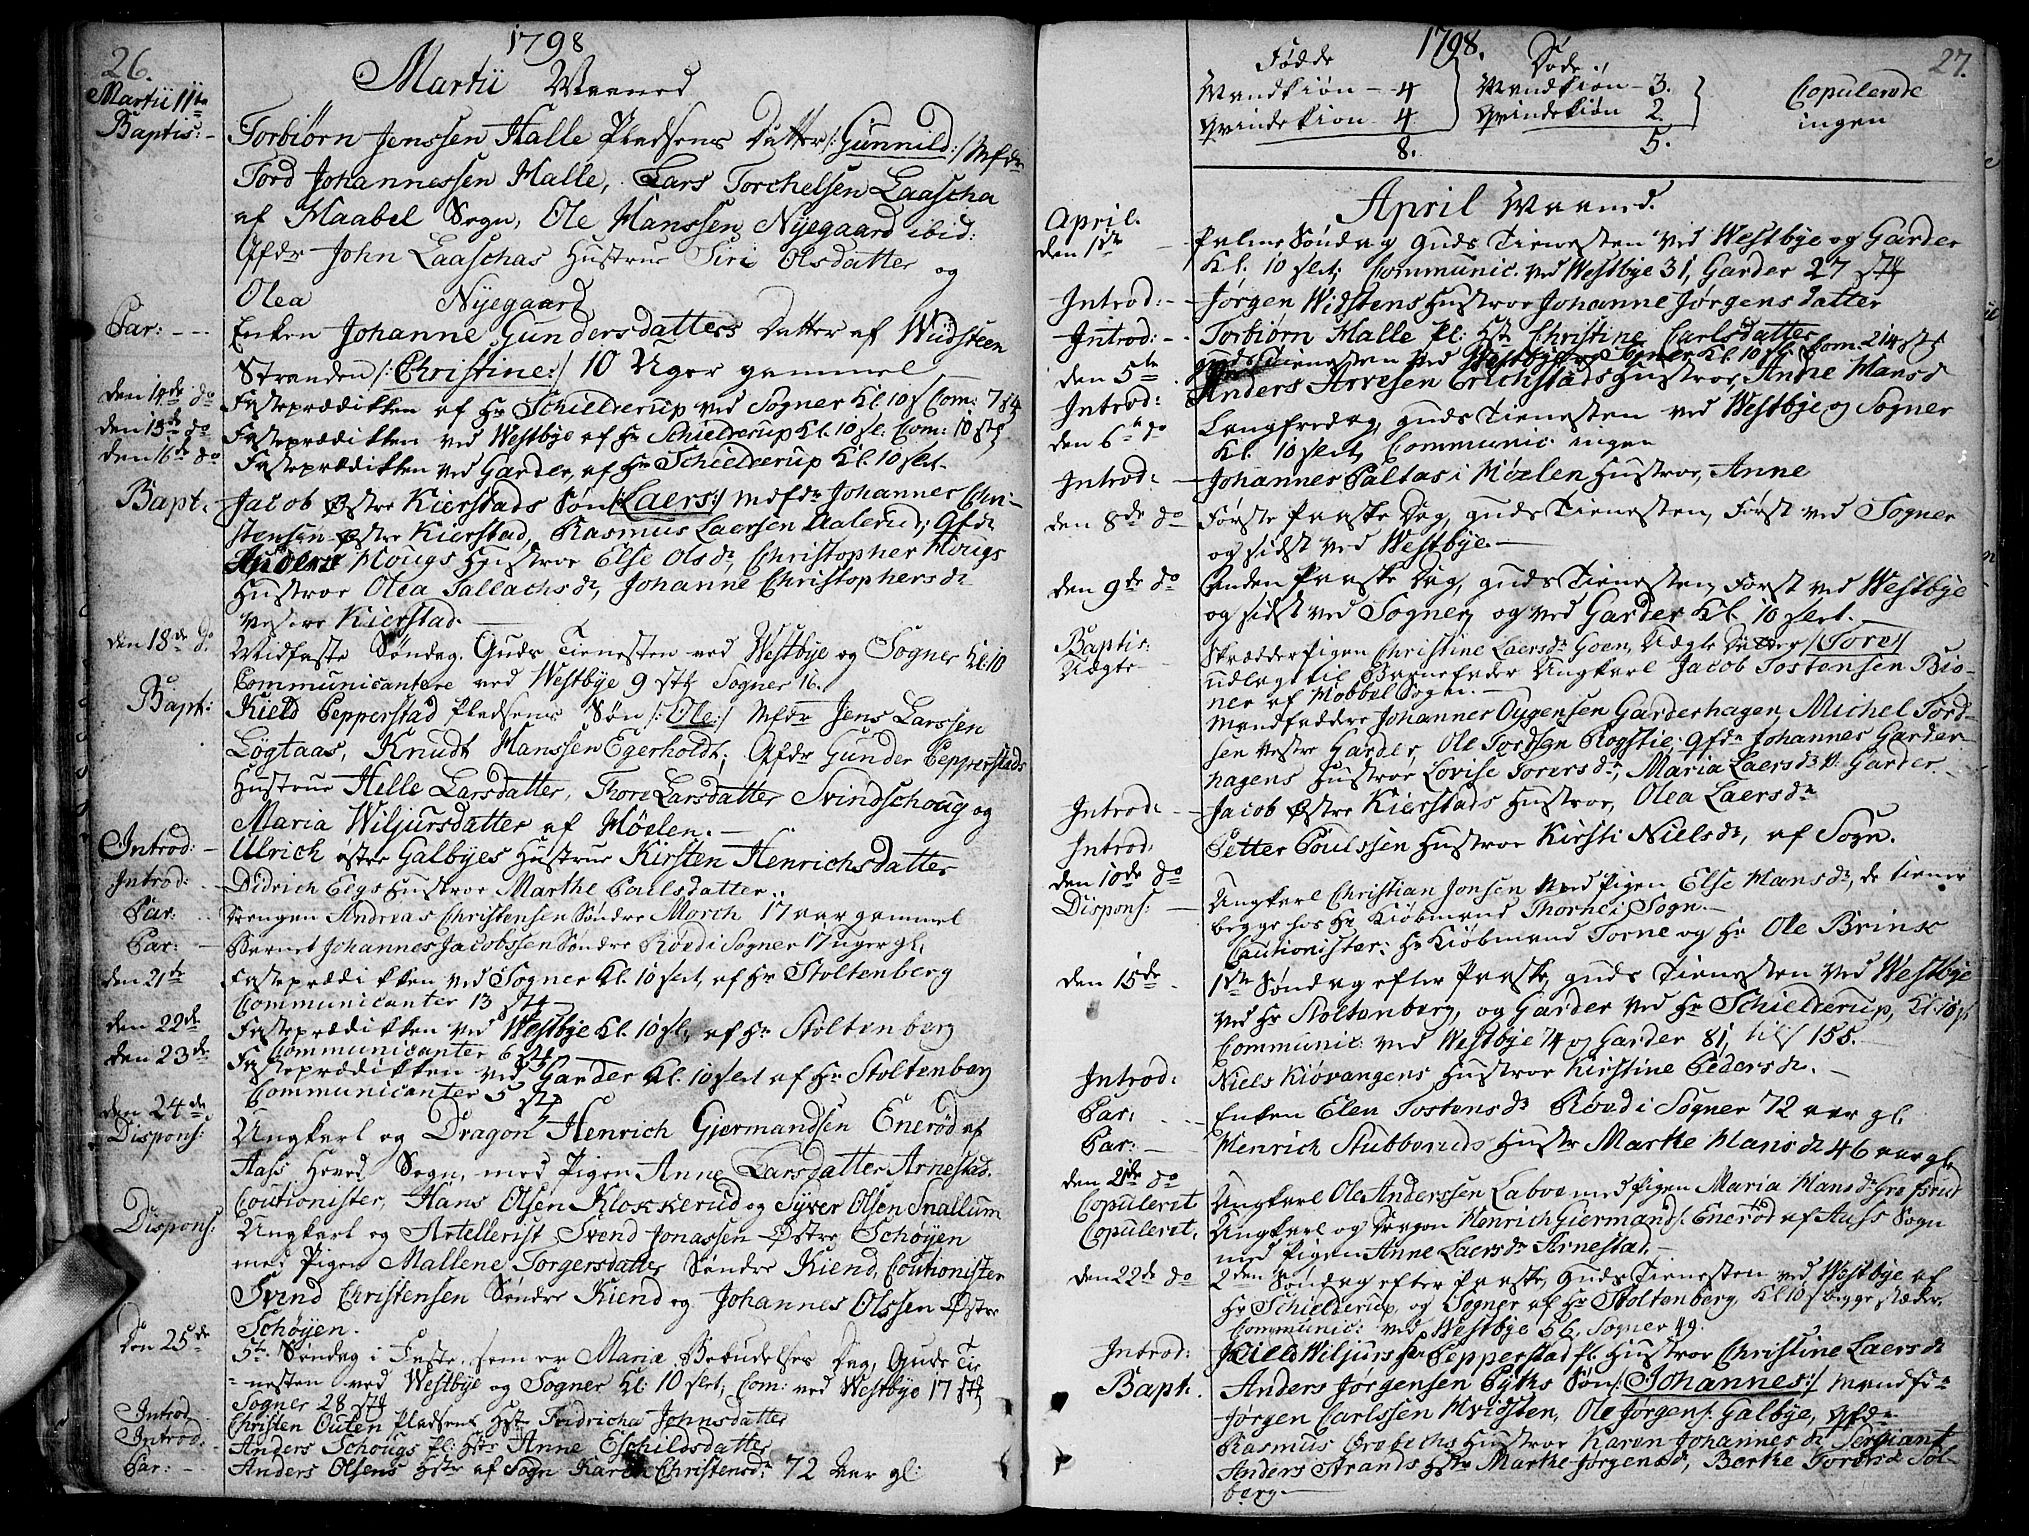 26.
1798
Martii Maaned
Martii 11te
Baptis: -
Torbiørn Jenssen Halle Pladsens Datter /:Gunnild:/ Mfdr
Tord Johannessen Halle, Lars Torchelsen Laascha
af Haabel Sogn, Ole Hanssen Nyegaard ibid:
Qfdr John Laaschas Hustrue Siri Olsdatter og
Olea Nyegaard
Par: - - -
Enken Johanne Gundersdatters Datter af Widsteen
Stranden /:Christine:/ 10 Uger gammel
den 14de do
Fasteprædikken af Hr Schielderup ved Sogner Kl. 10 s Com: 7 st
den 15de do
Fasteprædikken ved Westbye af Hr Schielderup Kl. 10 sl. Com: 10 stk
den 16de do
Fasteprædikken ved Garder, af Hr Schielderup Kl. 10 slet.
Bapt:
Jacob Østre Kierstads Søn /:Laers:/ Mdfdr Johannes Chri-
stensen Østre Kierstad, Rasmus Laersen Aalerud, Qfdr
Anders Hougs Hustroe Else Olsdr, Christopher Hougs
Hustroe Olea Tallachsdr, Johanne Christophersdr
Vestre Kierstad.
den 18de do
Midfaste Søndag. Guds Tienesten ved Westbye og Sogner Kl. 10
Communicantere ved Westbye 9 stk Sogner 16.
Bapt:
Kield Pepperstad Pladsens Søn /:Ole:/ Mfdr Jens Larssen
Løgtaas, Knudt Hanssen Egerholdt, Qfdr Gunder Pepperstads
Hustrue Helle Larsdatter, Thore Larsdatter Svindschoug og
Maria Wiljursdatter af Hølen. -
Introd: -
Ulrich østre Galbyes Hustrue Kirsten Henrichsdatter
Introd: -
Didrich Eegs Hustroe Marthe Paulsdatter.
Par: -
Drengen Andreas Christensen Søndre Morch 17 aar gammel
Par: -
Barnet Johannes Jacobssen Søndre Røed i Sogner 17 uger gl.
den 21te
Fasteprædikken ved Sogner Kl. 10 slet, af Hr Stoltenberg
Communicanter 13 stk
den 22de
Fasteprædikken ved Westbye Kl. 10 sl, af Hr Stoltenberg
Communicanter 6 stk
den 23de
Fasteprædikken ved Garder Kl. 10 slet af Hr Stoltenberg
Communicanter 5 stk
den 24de
Dispons:
Ungkarl og Dragon Henrich Gjermandsen Enerød af
Aass Hoved Sogn, med Pigen Anne Larsdatter Arnestad.
Coutionister, Hans Olsen Klokkerud og Syver Olsen Snallum
Dispons:
Ungkarl og Artellerist Svend Jonassen Østre Schøyen
med Pigen Mallene Torgersdatter Søndre Kiend, Coutionister
Svend Christensen Søndre Kiend og Johannes Olssen Østre
Schøyen.
Den 25de
5te Søndag i Faste, som er Mariæ Bebudelses Dag, Guds Tie
nesten ved Westbye og Sogner Kl. 10 slet, Com: ved Westbye 17 stk
Sogner 28 stk
Introd
Christen Outen Pladsens Hst: Fridricha Johnsdatter
Introd: -
Anders Schougs pl: Hstr Anne Eschildsdatter
Par: -
Anders Olsens Hstr af Sogn Karen Christensdr 72 Aar gl:
27.
1798.
Fødde
Mandkiøn - 4
Qvindekiøn - 4
8.
Døde
Mandkiøn - 3.
Qvindekiøn 2.
5.
Copulerede
ingen
April Maaned.
April.
den 1ste
Palme Søndag Guds Tienesten ved Westbye og Garder
Kl. 10 slet. Communic. ved Westbye 31, Garder 27 stk
Introd: -
Jørgen Widstens Hustroe Johanne Jørgensdatter
Introd: -
Torbiørn Halle pl: Hstr Christine Carlsdatter
den 5te
Guds Tienesten ved Westbye og Sogner Kl. 10 sl. Com. 214 stk
Introd:
Anders Arvesen Erichstads Hustroe, Anne Hansdr
den 6te do
Langfredag, Guds Tienesten ved Westbye og Sogner
Kl. 10 slet, Communic: ingen
Introd:
Johannes Paltas i Hølen Hustroe, Anne
den 8de do
Første Paaske Dag, Guds Tienesten, Først ved Sogner
og sidst ved Westbye. -
den 9de do
Anden Paaske Dag, Guds Tienesten, Først ved Westbye
og sidst ved Sogner, og ved Garder Kl. 10 slet.
Baptis:
Uægte
Skrædderpigen Christine Laersdr Goen, Uægte Datter /:Tore:/
udlagt til Barnefader Ungkarl Jacob Tostensen Bio-
ner af Hobbel Sogn. -
Mandfaddere Johannes Oygensen Garderhagen, Michel Tord-
sen Vestre Garder, Ole Tordsen Rogstie, Qfdr Johannes Garder-
hagens Hustroe Lovise Torersdr, Maria Laersdr V: Garder
Introd:
Jacob Østre Kierstads Hustroe, Olea Laersdr
Introd:
Petter Poulssen Hustroe Kirsti Nielsdr, af Sogn.
den 10de do
Dispons: -
Ungkarl Christian Jonsen med Pigen Else Hansdr, de tiener
begge hos Hr Kiøbmand Thorne i Sogn. -
Cautionister: Hr Kiøbmand Torne og Hr Ole Brinx
den 15de
1ste Søndag efter Paaske, Guds Tienesten ved Westbye
ved Hr Stoltenberg, og Garder ved Hr Schielderup, Kl. 10 s.
Communic: ved Westbye 74 og Garder 81, tils 155.
Introd:
Niels Kiøvangens Hustroe Kirstine Pedersdr. -
Par:
Enken Elen Tostensdr Røed i Sogner 72 aar gl.
Par: -
Henrich Stubberuds Hustr Marthe Hansdr 46 aar gl.
den 21de do
Copuleret
Ungkarl Ole Anderssen Laboe med Pigen Maria Hansdr
Copuleret.
Ungkarl og Dragon Henrich Giermands. Enerød af Aass Sogn
med Pigen Anne Laersdr Arnestad. -
den 22de do
2den Søndag efter Paaske, Guds Tienesten ved Westbye af
Hr Schielderup, og Sogner af Hr Stoltenberg, Kl. 10 s begge stæder.
Communic: ved Westbye 56. Sogner 49.
Introd:
Kield Wiljurs Pepperstad pl: Hustroe Christine Laersdr
Bapt.
Anders Jørgensen Pyks Søn /:Johannes:/ Mandfdr
Jørgen Carlssen Hvidsten, Ole Jørgens. Galbye, Qfdr
Rasmus Hustroe Karen Johannesdr, Sergiant
Anders Strands Hstr Marthe Jørgensdr, Berthe Torersdr Sol-
berg. -